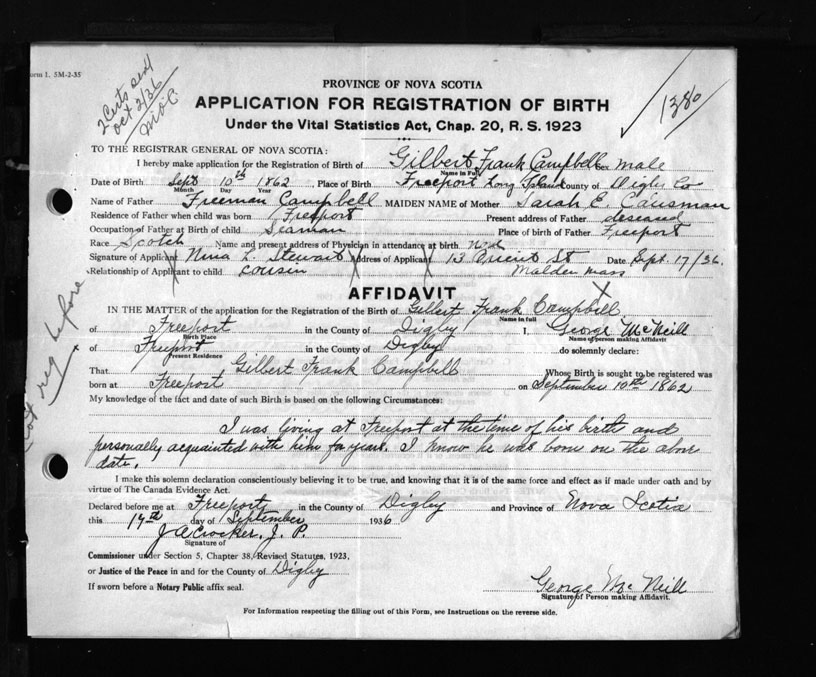 Form 1. 5M-2-35
2 Certs sent
Oct 2/36
M.O.C.
1380
PROVINCE OF NOVA SCOTIA
APPLICATION FOR REGISTRATION OF BIRTH
Under the Vital Statistics Act, Chap. 20, R. S. 1923
TO THE REGISTRAR GENERAL OF NOVA SCOTIA:
I hereby make application for the Registration of Birth of Gilbert Frank Campbell Sex male
Name in Full
Date of Birth Sept 10th 1862 Place of Birth Freeport Long Island County of Digby Co
Month Day Year
Name of Father Freeman Campbell MAIDEN NAME of Mother Sarah E. Causman
Residence of Father when child was born Freeport Present address of Father deseased
Occupation of Father at Birth of child Seaman Place of birth of Father Freeport
Race Scotch Name and present address of Physician in attendance at birth
Signature of Applicant Nina L. Stewart Address of Applicant 13 Orient St Date Sept. 17/36.
Relationship of Applicant to child cousin Malden Mass
AFFIDAVIT
IN THE MATTER of the application for the Registration of Birth of Gilbert Frank Campbell
Name in full
of Freeport in the County of Digby I, George McNeill
Birth Place Name of person making Affidavit
of Freeport in the County of Digby do solemnly declare:
Present Residence
That Gilbert Frank Campbell Whose Birth is sought to be registered was
born at Freeport on September 10th 1862
My knowledge of the fact and date of such Birth is based on the following Circumstances:
I was living at Freeport at the time of his birth and
personally acquainted with him for years. I know he was born on the above
date.
I make this solemn declaration conscientiously believing it to be true, and knowing that it is of the same force and effect as if made under oath and by
virtue of The Canada Evidence Act.
Declared before me at Freeport in the County of Digby and Province of Nova Scotia
this 17th day of September 1936
J A Crocker, J. P.
Signature of
Commissioner under Section 5, Chapter 38, Revised Statutes, 1923,
or Justice of the Peace in and for the County of Digby
If sworn before a Notary Public affix seal.
George McNeill
Signature of Person making Affidavit.
For Information respecting the filling out of this Form, see Instructions on the reverse side.
not reg before